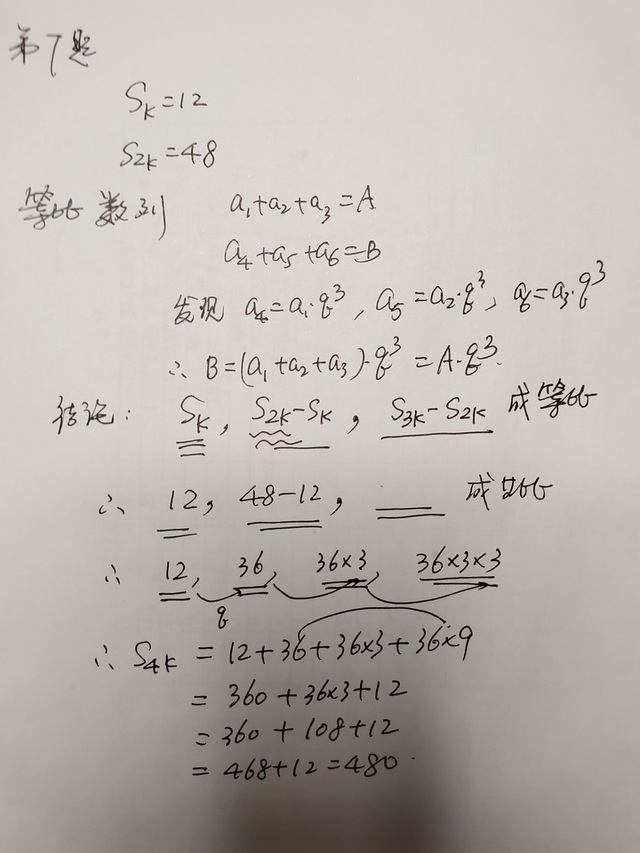 第7题
S_k=12
S_2k=48
等比数列 a₁+a₂+a₃=A
a₄+a₅+a₆=B
发现 a₄=a₁·q³, a₅=a₂·q³, q₆=a₃·q³
∴ B=(a₁+a₂+a₃)·q³=A·q³.
结论: S_k, S_2k-S_k, S_3k-S_2k 成等比
∴ 12, 48-12, ___ 成等比
∴ 12, 36, 36×3, 36×3×3
q
∴ S_4k = 12+36+36×3+36×9
= 360+36×3+12
= 360+108+12
= 468+12=480.